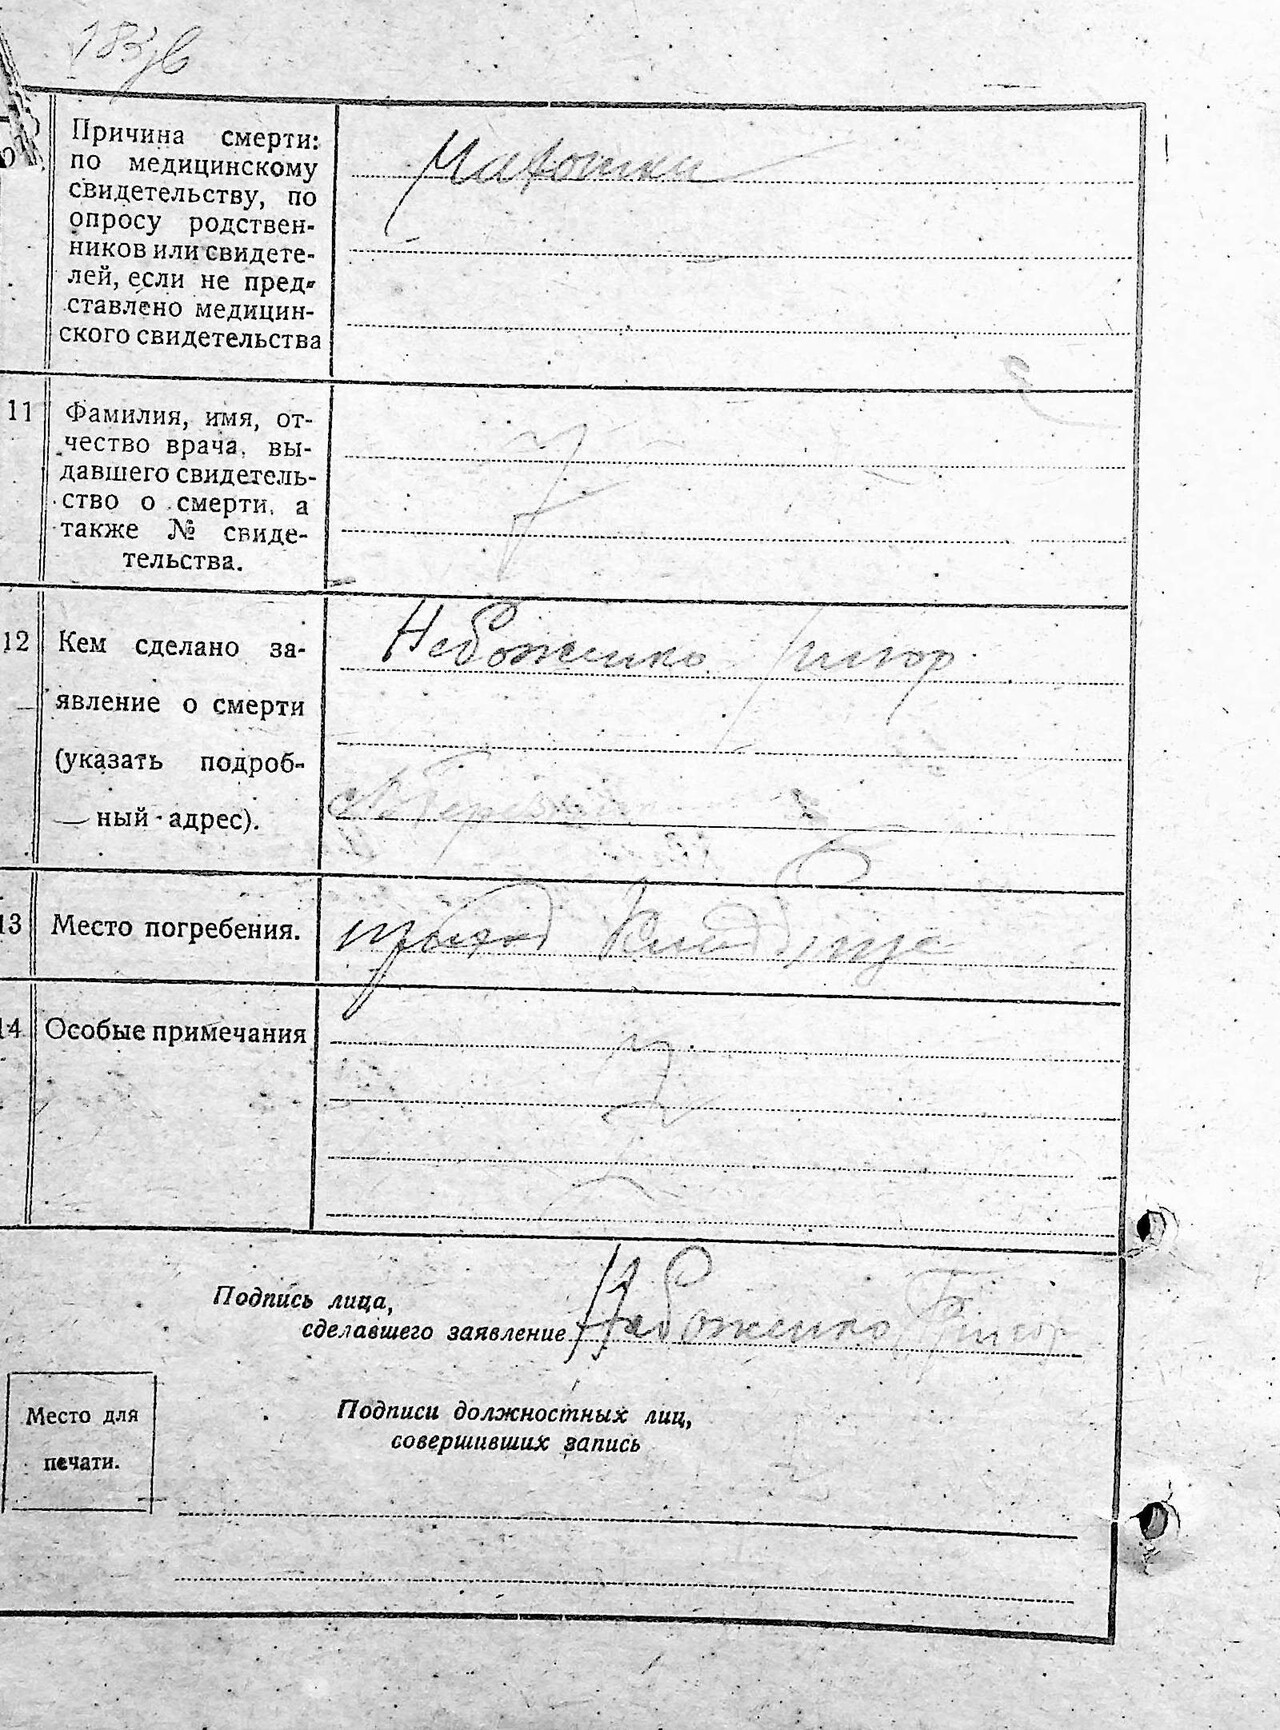 Причина смерти:
по медицинскому
свидетельству, по
опросу родствен-
ников или свидете-
лей, если не пред-
ставлено медицин-
ского свидетельства
11 Фамилия, имя, от-
чество врача, вы-
давшего свидетель-
ство о смерти, а
также № свиде-
тельства.
12 Кем сделано за-
явление о смерти
(указать подроб-
ный адрес).
Небоженко Григор.
13 Место погребения.
14 Особые примечания
Подпись лица,
сделавшего заявление Небоженко Григор
Место для
печати.
Подписи должностных лиц,
совершивших запись